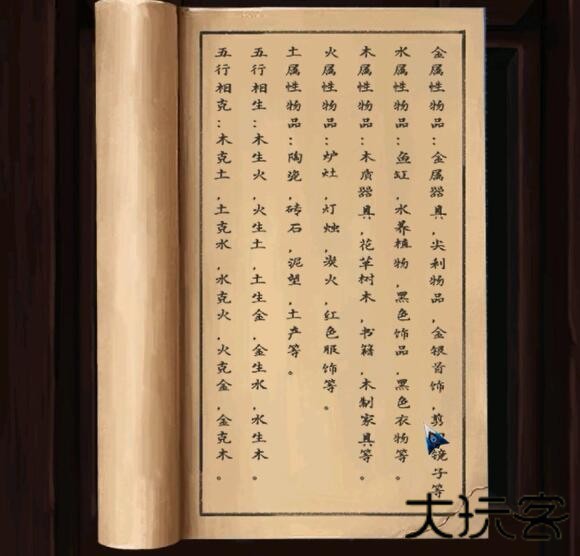 金属性物品:金属器具,尖利物品,金银首饰,剪镜子等
水属性物品:鱼缸,水养植物,黑色饰品,黑色衣物等。
木属性物品:木质器具,花草树木,书籍,木制家具等。
火属性物品:炉灶,灯烛,炭火,红色服饰等。
土属性物品:陶瓷,砖石,泥塑,土产等。
五行相生:木生火,火生土,土生金,金生水,水生木。
五行相克:木克土,土克水,水克火,火克金,金克木。
大玩客